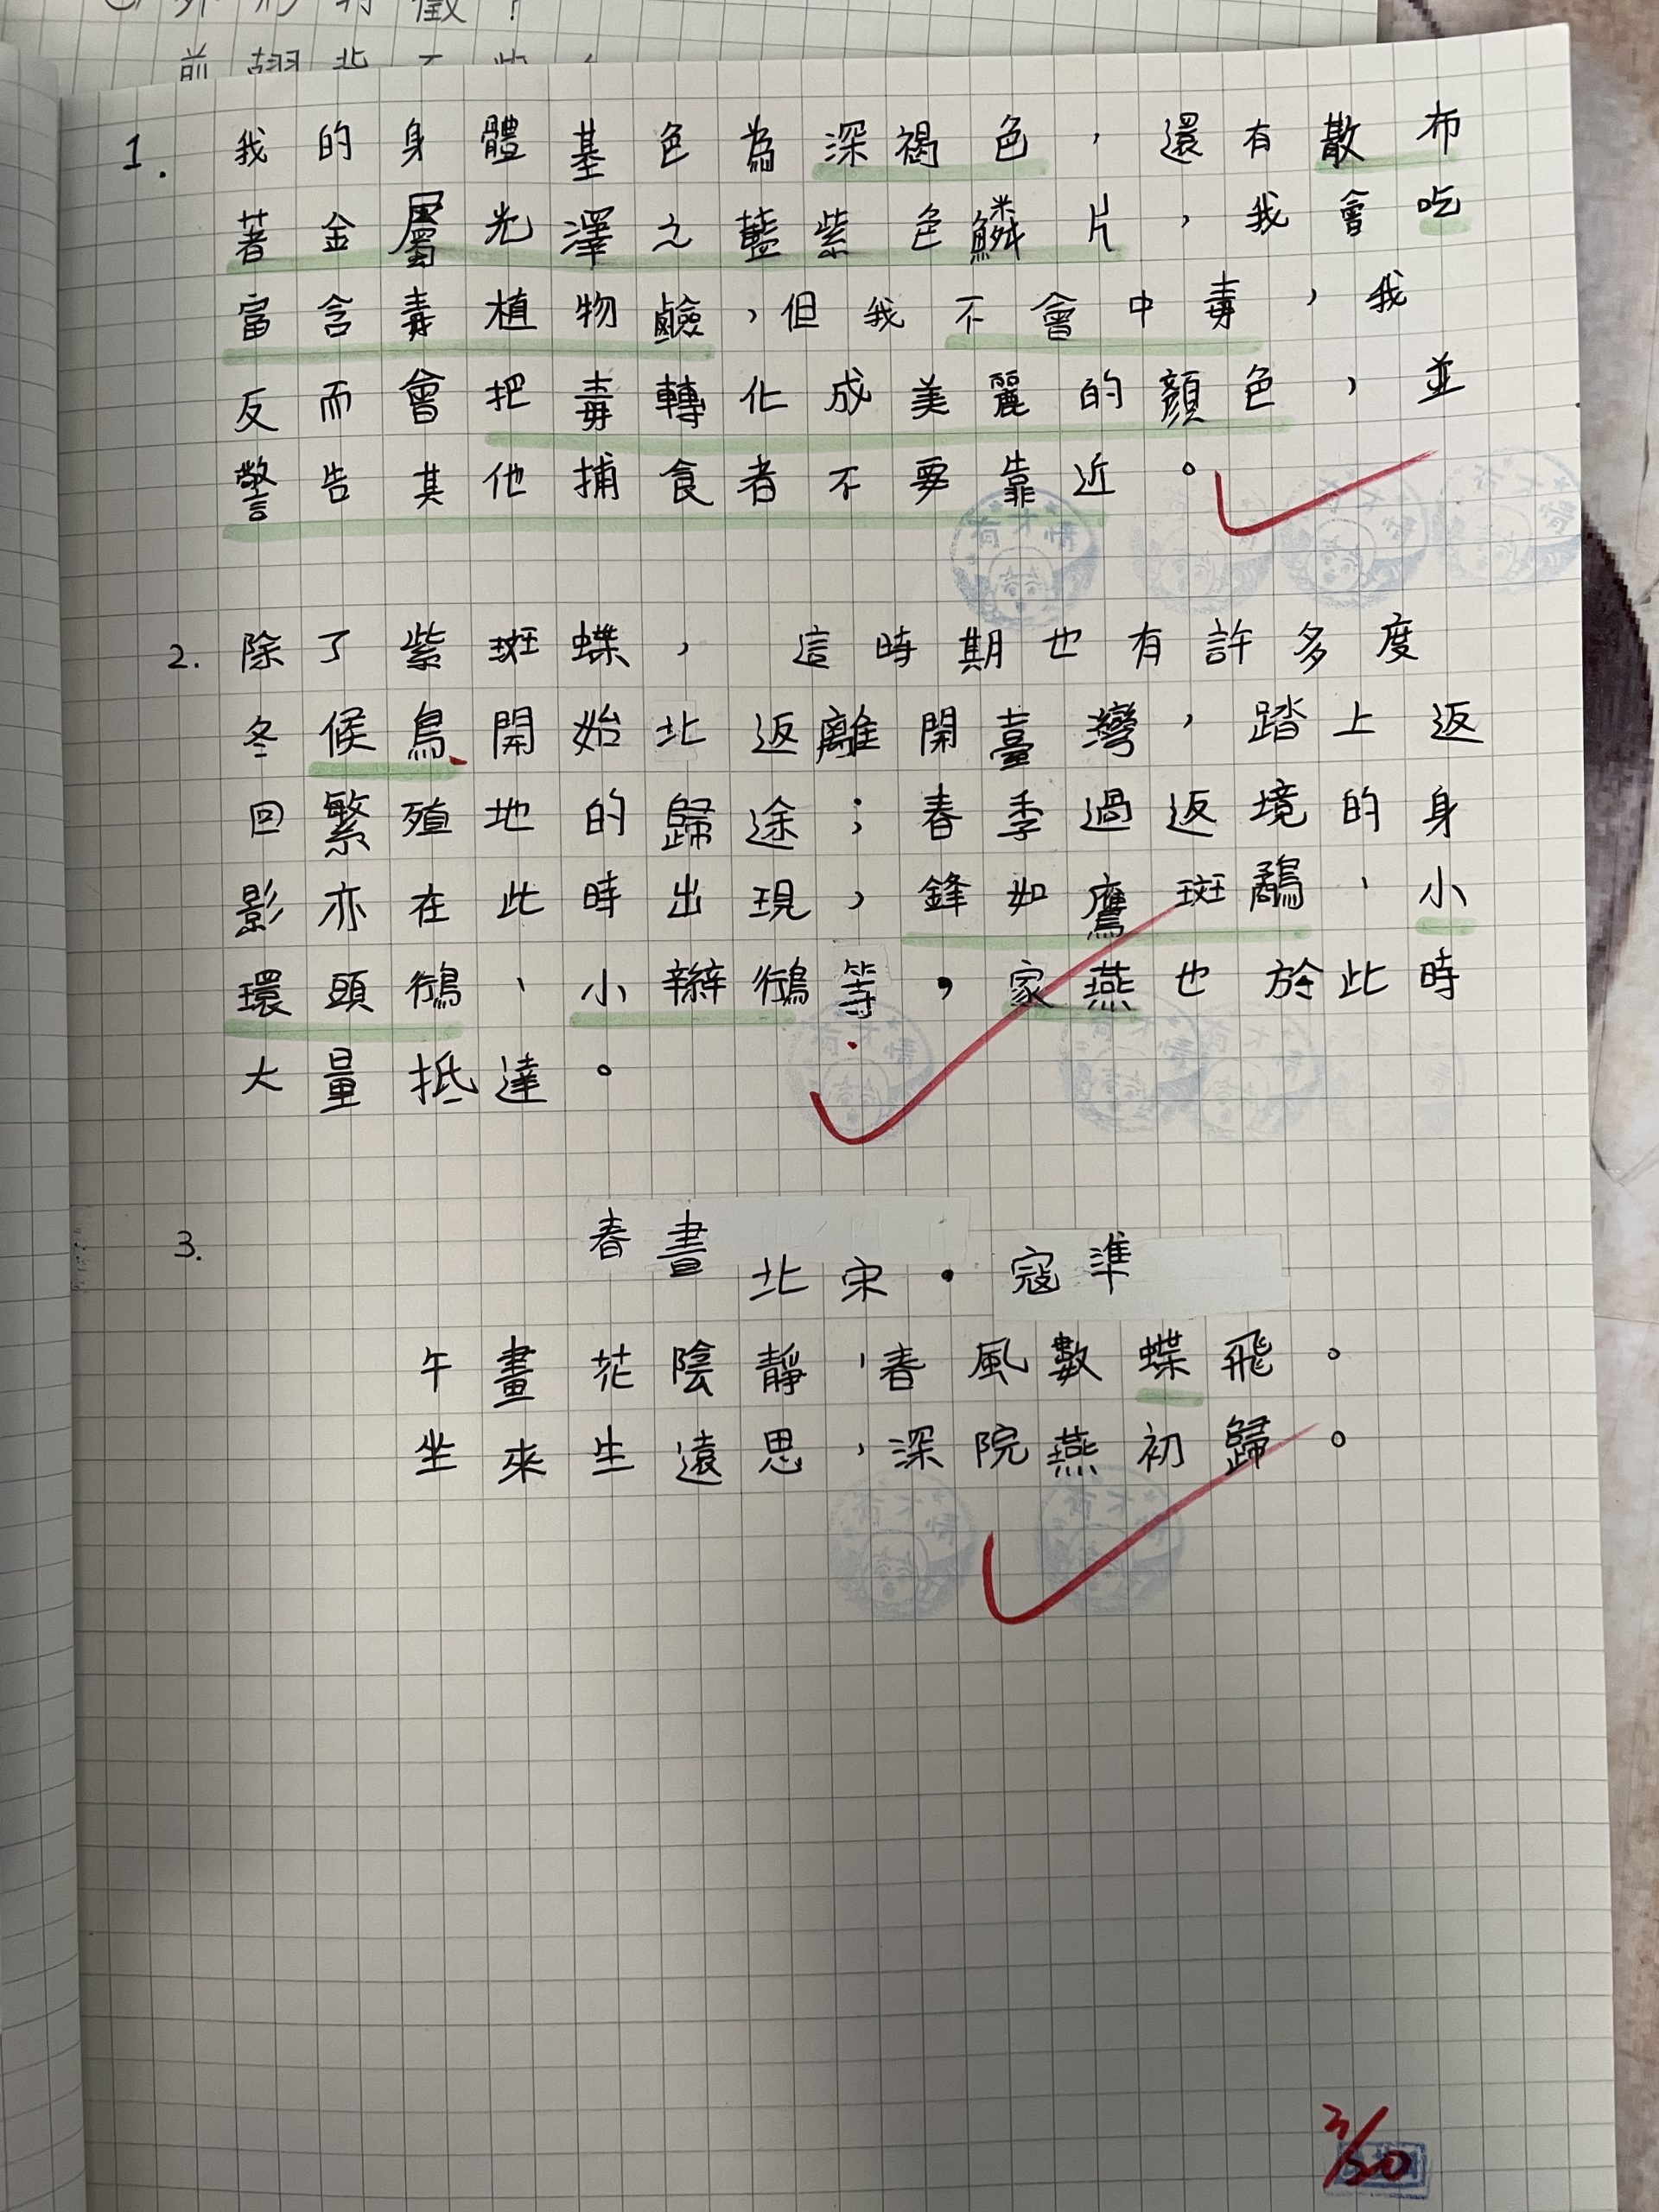 1. 我的身體基色為深褐色，還有散布
著金屬光澤之藍紫色鱗片，我會吃
富含毒植物鹼，但我不會中毒，我
反而會把毒轉化成美麗的顏色，並
警告其他捕食者不要靠近。
2. 除了紫斑蝶， 這時期也有許多度
冬候鳥開始北返離開臺灣，踏上返
回繁殖地的歸途；春季過返境的身
影亦在此時出現，鋒如鷹斑鷸、小
環頭鴴、小辮鴴等，家燕也於此時
大量抵達。
3. 春晝
北宋·寇準
午晝花陰靜，春風數蝶飛。
坐來生遠思，深院燕初歸。
3/30